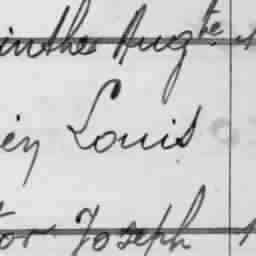 inthe Augte
ien Louis
tor Joseph